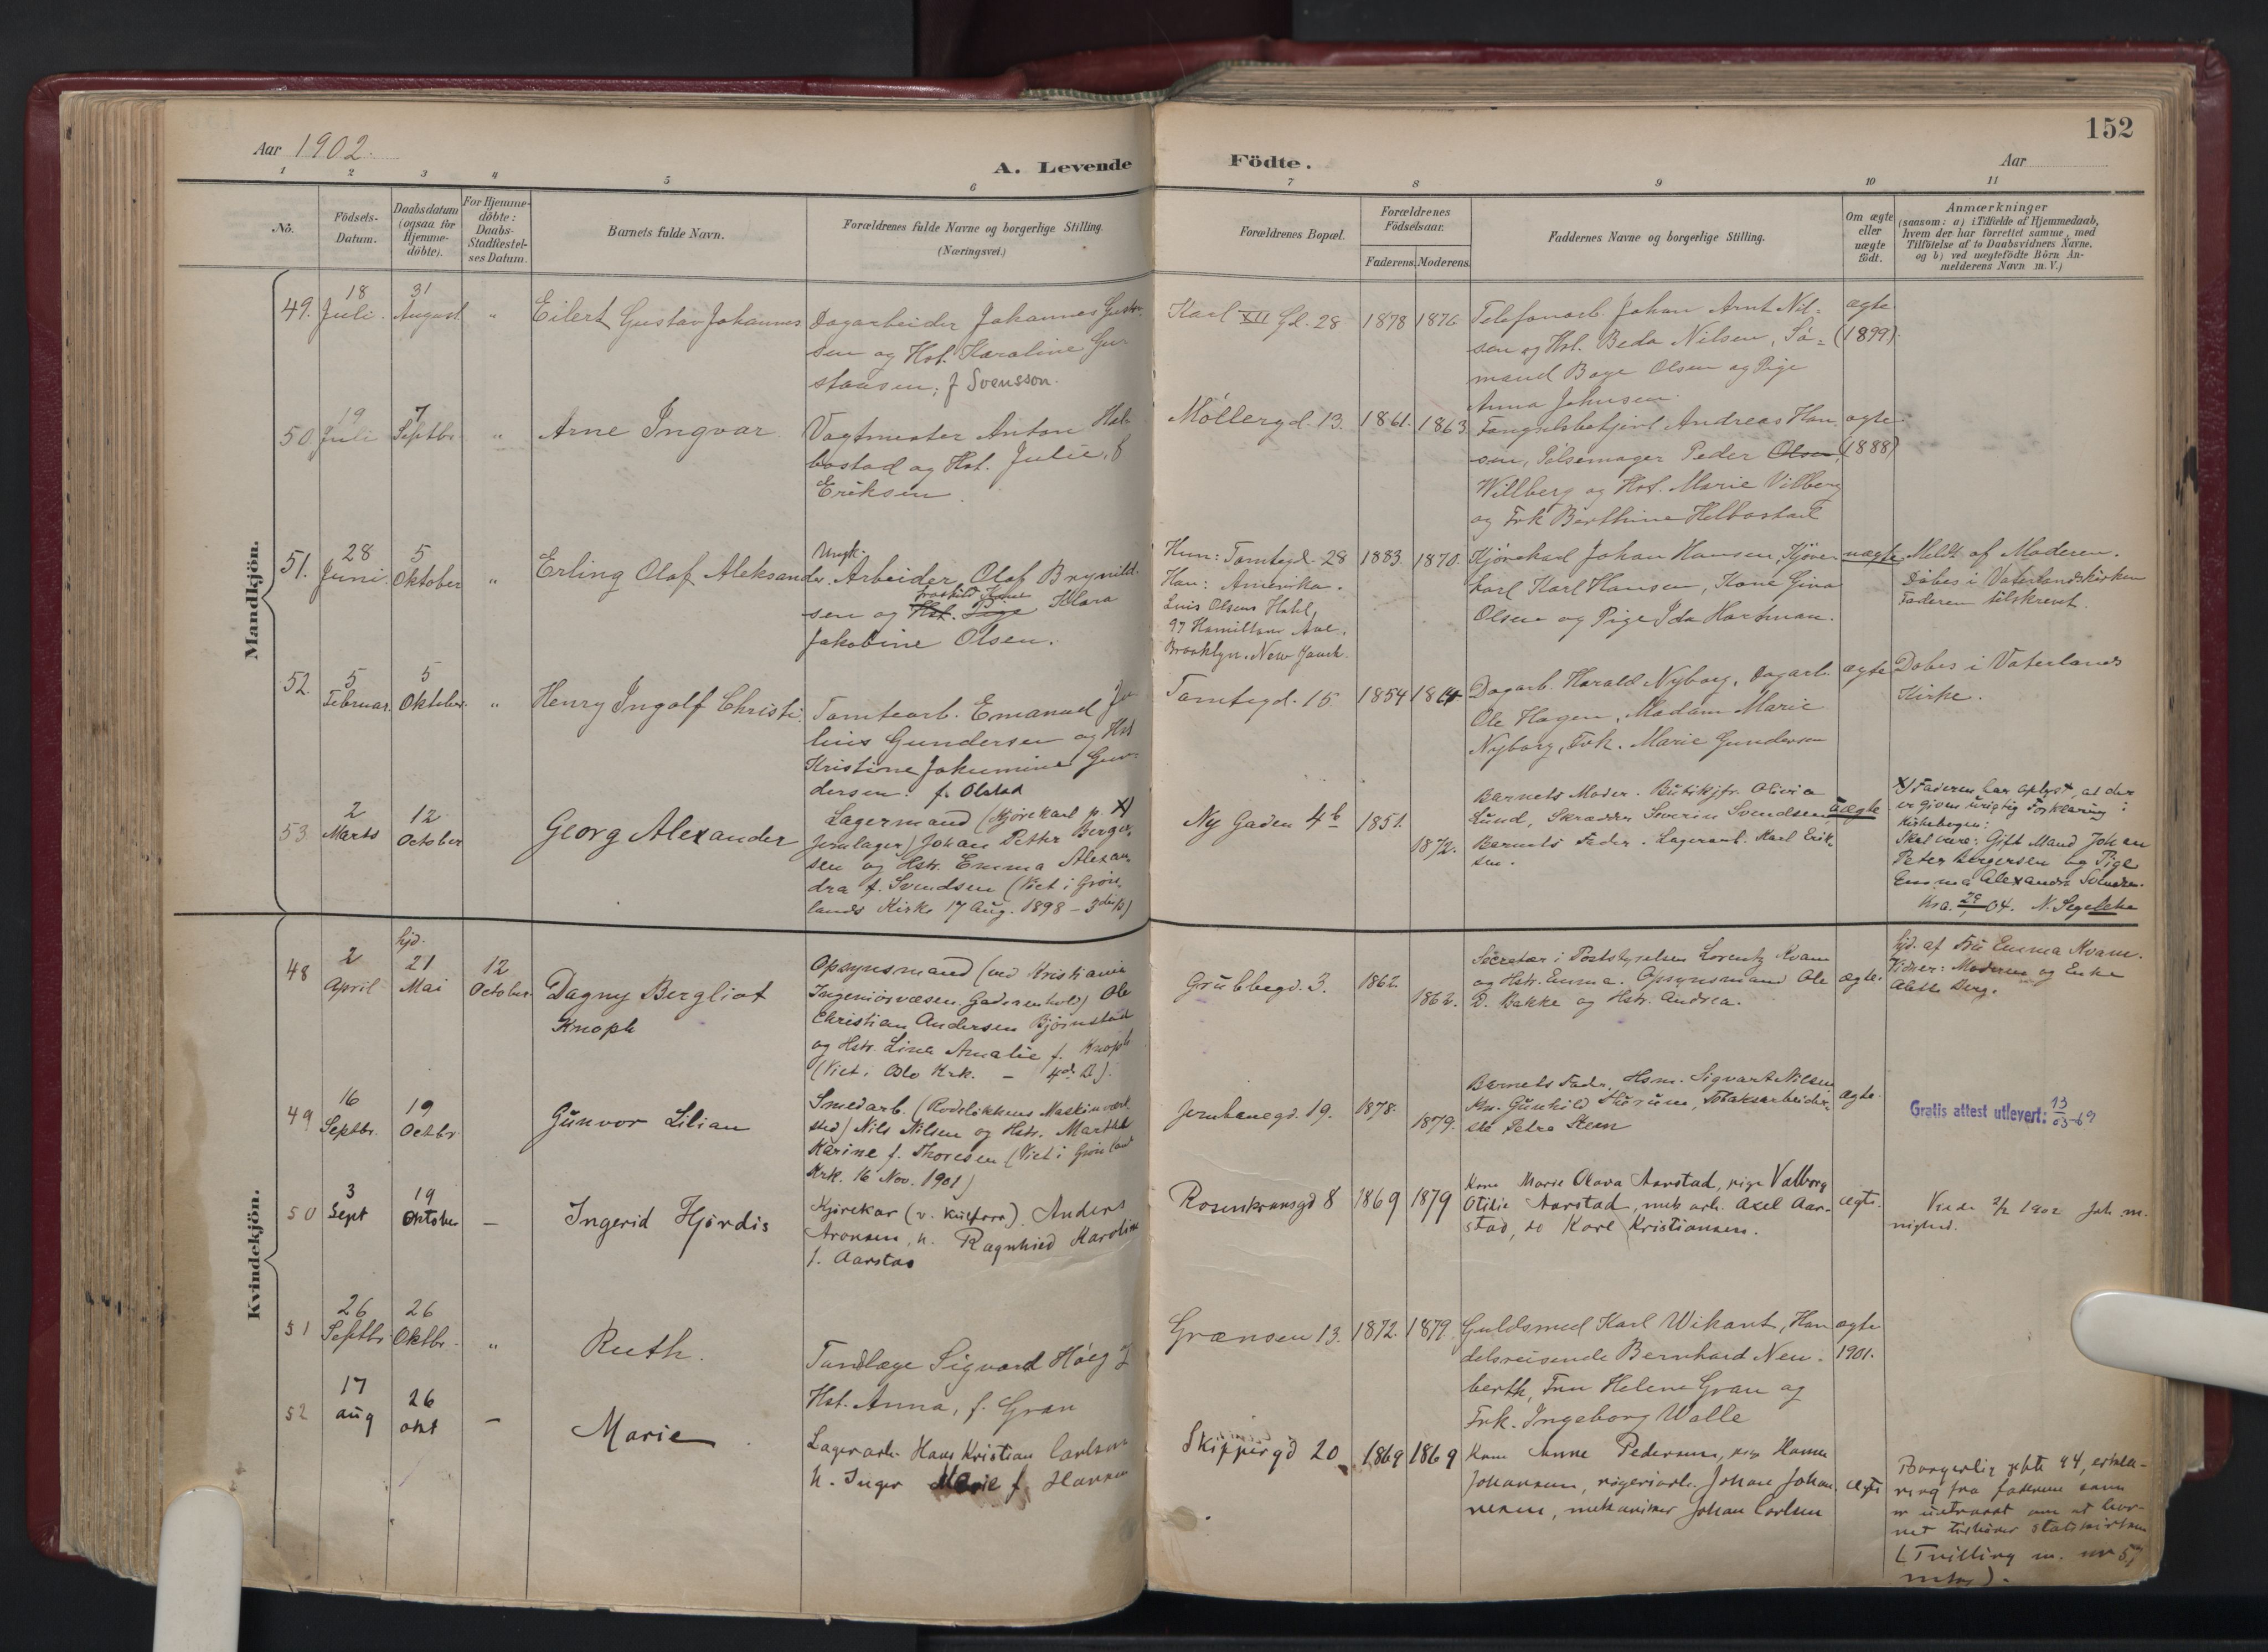 152
Aar 1902.
A. Levende Födte.
Aar
1 2 3 4 5 6 7 8 9 10 11
Nô.
Födsels-
Datum.
Daabsdatum
(ogsaa for
Hjemme-
döbte).
For Hjemme-
döbte:
Daabs-
Stadfæstel-
ses Datum.
Barnets fulde Navn.
Forældrenes fulde Navne og borgerlige Stilling.
(Næringsvei.)
Forældrenes Bopæl.
Forældrenes
Födselsaar.
Faderens. Moderens.
Faddernes Navne og borgerlige Stilling.
Om ægte
eller
uægte
födt.
Anmærkninger
(saasom: a) i Tilfælde af Hjemmedaab,
hvem der har forrettet samme, med
Tilföielse af to Daabsvidners Navne.
og b) ved uægtefödte Börn An-
melderens Navn m. V.)
Mandkjön.
49.
18
Juli.
31
August.
"
Eilert Gustav Johannes
Dagarbeider Johannes Gustav-
sen og Hst. Karoline Gu-
stavsen, f Svensson.
Karl XII Gd. 28
1878
1876
Telefonarb. Johan Arnt Nil=
sen og Hst. Beda Nilsen, Sø=
mand Boye Olsen og Pige
Anna Johnsen.
ægte
(1899)
50
19
Juli
7
Septbr
"
Arne Ingvar
Vagtmester Anton Hel-
bostad og Hst. Julie, f
Eriksen.
Møllergd. 13.
1861.
1863
Fængselsbetjent Andreas Han-
sen, Pølsemager Peder Olsen,
Willberg og Hst. Marie Vilberg
og Frk Berthine Helbostad
ægte
(1888)
51.
28
Juni.
5
Oktober
"
Erling Olaf Aleksander.
Ungk.
Arbeider Olaf Brynild-
sen og Hst. Pige Klara
Jakobine Olsen.
Hun: Tomtegd. 28
Han: Amerika.
Luis Olsens Hotel,
97 Hamilton Ave.
Brooklyn. New Yauk.
1883.
1870.
Kjørekarl Johan Hansen, Kjøre-
karl Karl Hansen, Kone Gina
Olsen og Pige Ida Hartman.
uægte
Meldt af Moderen.
Døbes i Vaterlandskirken
Faderen tilskrevet.
52.
5
Februar.
5
Oktober.
"
Henry Ingolf Christi.
Tomtearb. Emanuel Ju-
lius Gundersen og Hst
Kristine Jokumine Gun-
dersen. f. Olstad
Tomtegd. 15
1854
Dagarb. Harald Nyborg, Dagarb.
Ole Hagen, Madam Marie
Nyborg, Frk. Marie Gundersen
ægte
Døbes i Vaterlands
Kirke.
53
2
Marts
12
October
Georg Alexander
Lagermand (Kjørekarl p. X)
Jernlager) Johan Petter Berger-
sen og Hstr. Emma Alexan-
dra f. Svendsen (Viet i Grøn-
lands Kirke 17 Aug. 1898 – 3die B)
Ny Gaden 4b
1851.
1872.
Barnets Moder. Butikjfr. Olivia
Lund, Skrædder Severin Svendsen
Barnets Fader. Lagerarb. Karl Erik-
sen.
Uægte
X) Faderen har oplyst, at der
er given urigtig Forklaring i
Kirkebogen:
Skal være: Gift Mand Johan
Peter Bergersen og Pige
Emma Alexandra Svendsen.
Kra. 04. N. Segelcke
Kvindekjön.
48
2
April
hjd.
21
Mai
12
October.
Dagny Bergliot
Knoph
Opsynsmand (ved Kristiania
Ingeniørvæsen. Gaderenhold) Ole
Christian Andersen Bjørnstad
og Hstr. Lina Amalie f. Knoph
(Viet i Oslo Krk. – 4de B).
Grubbegd. 3.
1862
1862.
Secretær i Poststyrelsen Lorentz Kvam
og Hstr. Emma. Opsynsmand Ole
D. Bakke og Hstr. Andrea.
ægte.
hjd. af Fru Emma Kvam.
Vidner: Moderen og Enke
Alette Berg.
49
16
Septbr.
19
Octbr
Gunvor Lilian
Smedarb. (Rodeløkkens Maskinverk-
sted) Nils Nilsen og Hstr. Marthe
Karine f. Thoresen (Viet i Grønland
Krk. 16 Nov. 1901)
Jernbanegd. 19.
1878.
1879.
Barnets Fader, Hsm. Sigvart Nilsen
Kn. Gunhild Sørum, Tobaksarbeider-
ske Petra Steen
ægte.
Gratis attest utlevert: 13/03-69
50
3
Sept
19
Oktober
–
Ingerid Hjørdis
Kjørekar (v. Kulforr). Anders
Aronsen, h. Ragnhild Karoline
f. Aarstad
Rosenkransgd 8
1869
1879
Kone Marie Olava Aarstad, pige Valborg
Otilie Aarstad, mek arb. Axel Aar-
stad, do Karl Kristiansen.
ægte.
51
26
Septbr
26
Oktbr.
"
Ruth.
Tandlæge Sigvard Høeg
Hst. Anna, f. Gran
Grænsen 13.
1872.
1879.
Guldsmed Karl Wikant, Han-
delsreisende Bernhard Neu-
berth, Fru Helene Gran og
Frk. Ingeborg Walle
ægte
1901.
52
17
aug
26
okt
–
Marie
Lagerarb. Hans Kristian Carlsen
h. Inger Marie f. Hansen
Skippergd 20
1869
1869
Kone Anne Pedersen, pige Hanna
Johansen, rørleggerarb. Johan Johan-
nesen, mekaniker Johan Carlsen
ægte
Borgerlig gifte 94, erklæ-
ring fra faderen som
er uttraadt om at bar-
net tilhører statskirken
(Tvilling m. nr 5